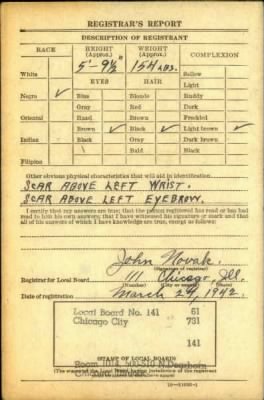 REGISTRAR'S REPORT
DESCRIPTION OF REGISTRANT
RACE HEIGHT (Approx.) WEIGHT (Approx.) COMPLEXION
5'-9½" 154 LBS. Sallow
White EYES HAIR Light
Negro ✓ Blue Blonde Ruddy
Gray Red Dark
Oriental Hazel Brown Freckled
Brown ✓ Black ✓ Light brown ✓
Indian Black Gray Dark brown
Bald Black
Filipino
Other obvious physical characteristics that will aid in identification
SCAR ABOVE LEFT WRIST.
SCAR ABOVE LEFT EYEBROW.
I certify that my answers are true; that the person registered has read or has had
read to him his own answers; that I have witnessed his signature or mark and that
all of his answers of which I have knowledge are true, except as follows:
John Novak
(Signature of registrar)
Registrar for Local Board 111 Chicago, Ill.
(Number) (City or county) (State)
Date of registration March 24, 1942.
Local Board No. 141 61
Chicago City 731
141
Room 1014, 500-510 N. Dearborn
(STAMP OF LOCAL BOARD)
(The stamp of the Local Board having jurisdiction of the registrant